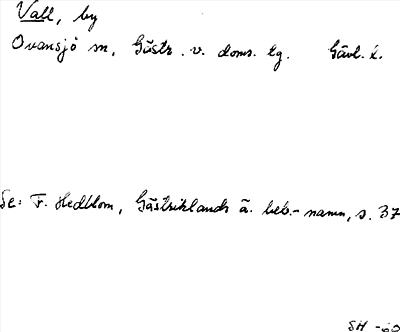 Vall, by
Ovansjö sn, Gästr. v. doms. tg. Gävl. l.
Se: F. Hedblom, Gästriklands ä. beb.-namn, s. 37
SH -60